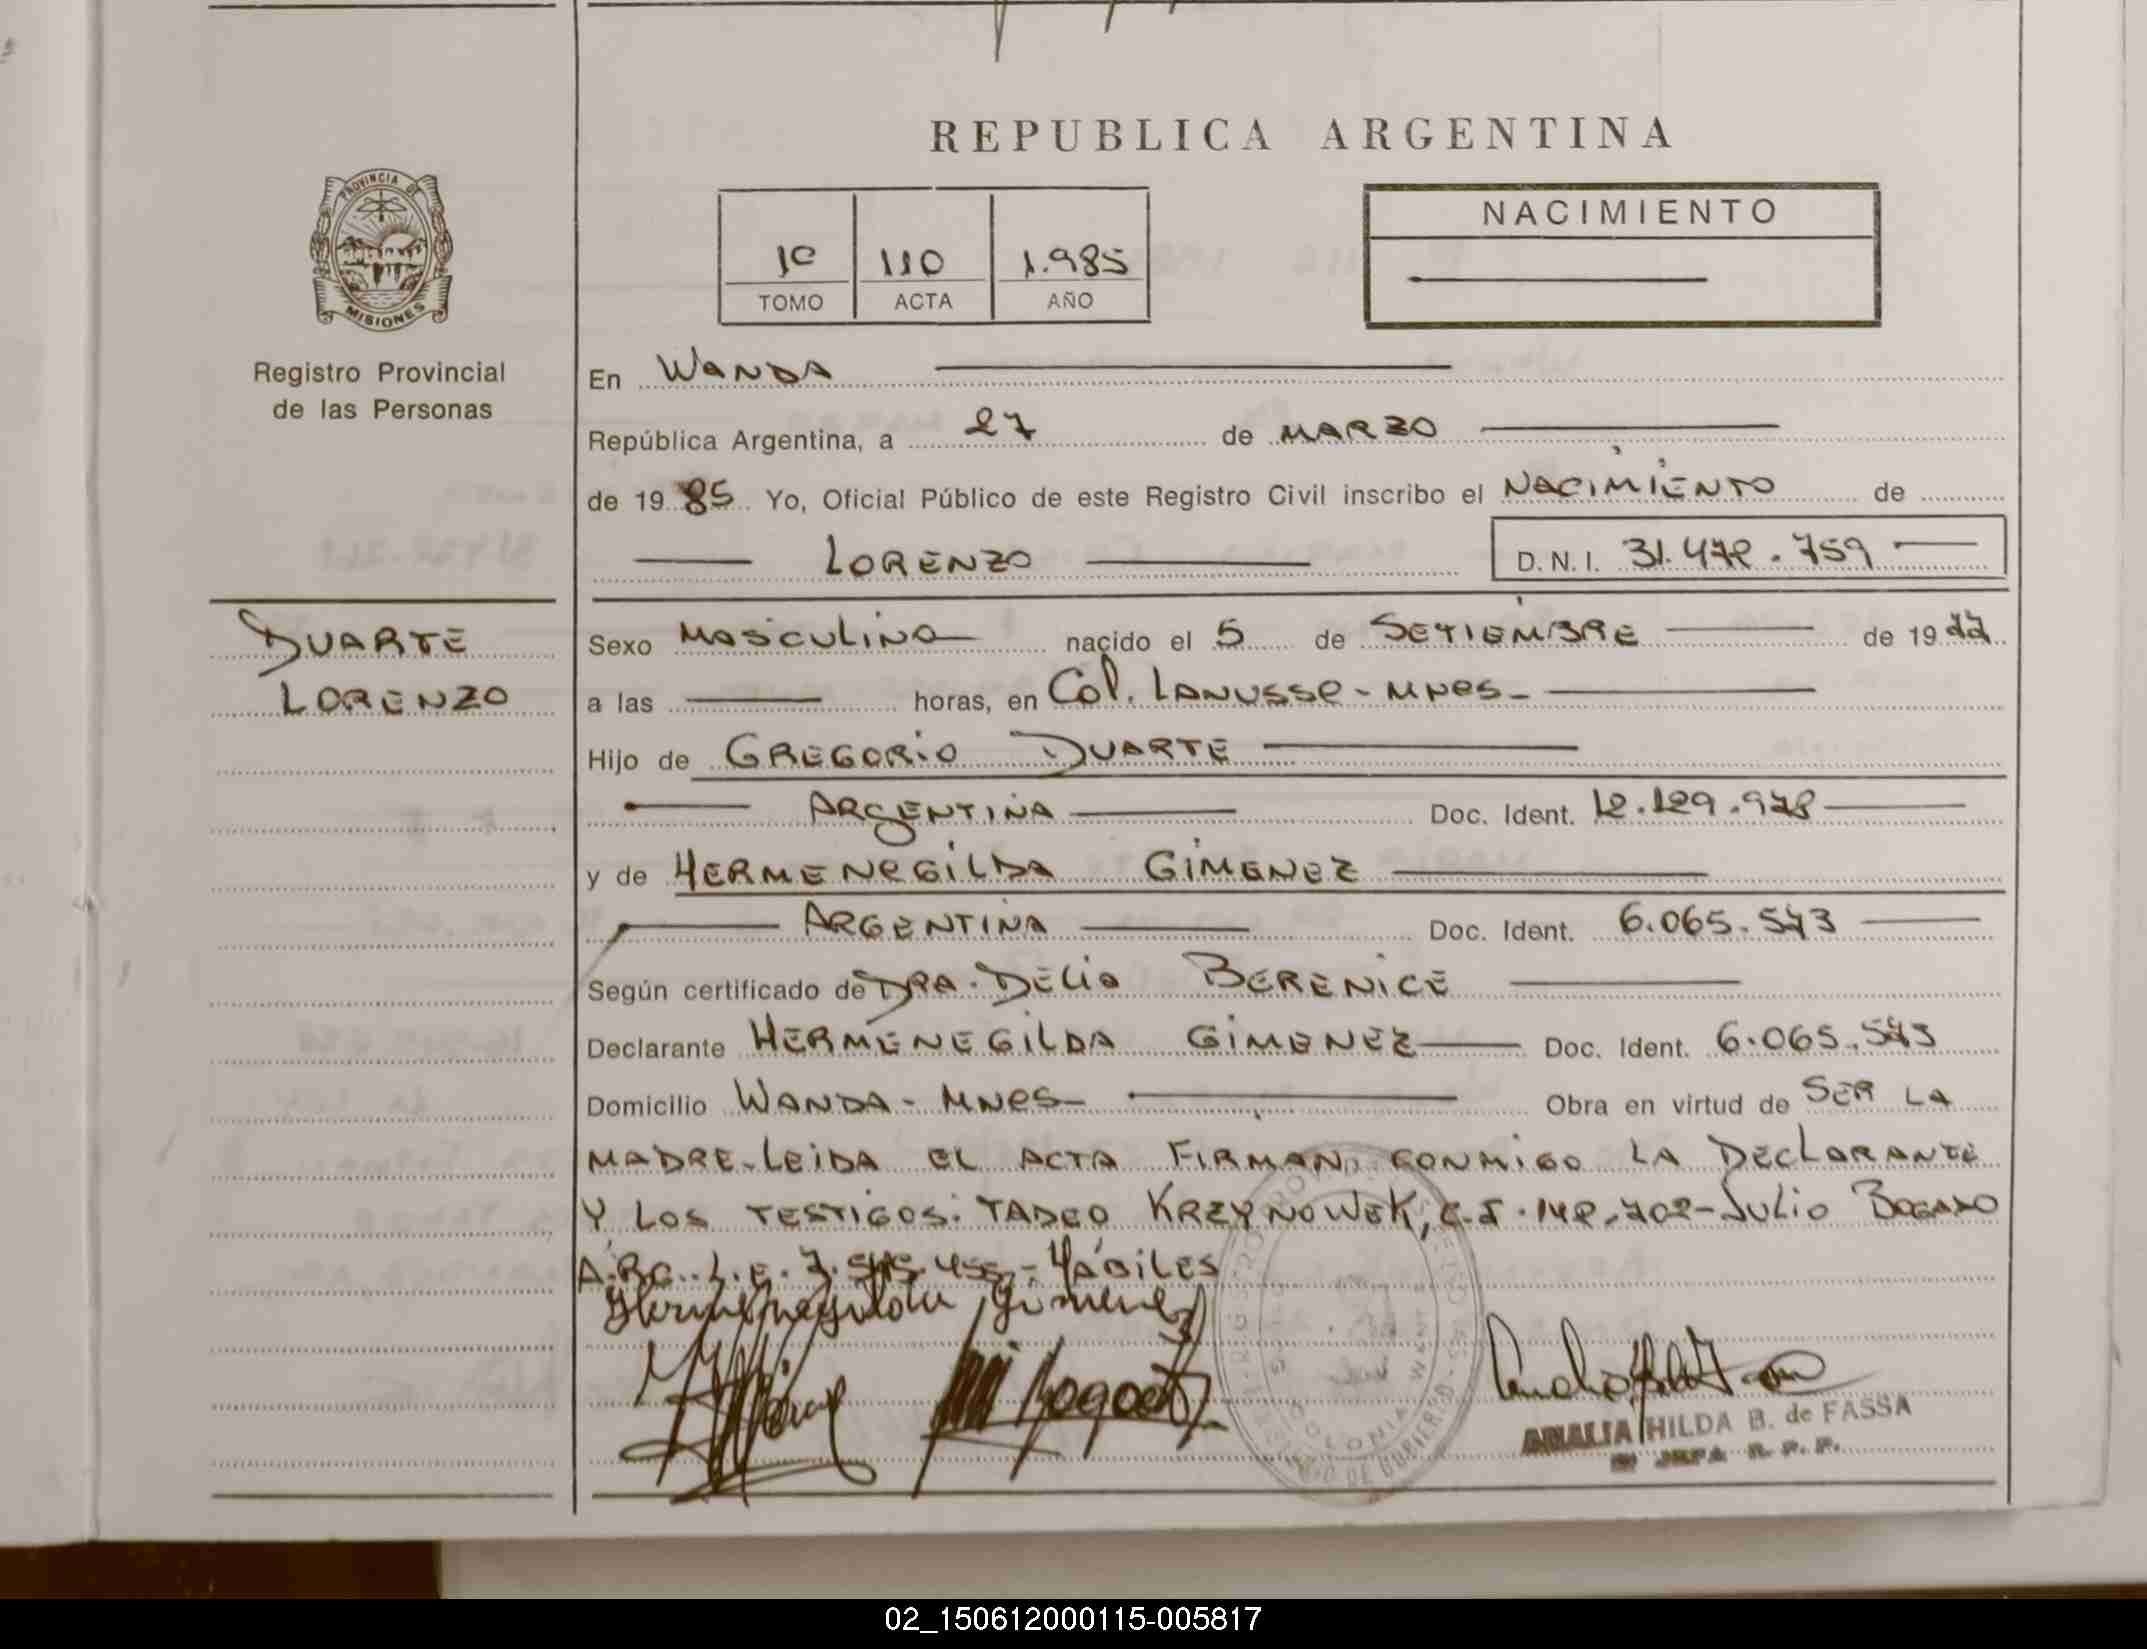 REPUBLICA ARGENTINA
PROVINCIA DE
MISIONES
Registro Provincial
de las Personas
1º TOMO
110 ACTA
1.985 AÑO
NACIMIENTO
En WANDA
República Argentina, a 27 de MARZO
de 19 85 Yo, Oficial Público de este Registro Civil inscribo el NACIMIENTO de
LORENZO D.N.I. 31.472.759
DUARTE
LORENZO
Sexo MASCULINO nacido el 5 de SETIEMBRE de 19 77
a las horas, en Col. LANUSSE - MNES -
Hijo de GREGORIO DUARTE
ARGENTINA Doc. Ident. 12.129.978
y de HERMENEGILDA GIMENEZ
ARGENTINA Doc. Ident. 6.065.573
Según certificado de DRA. DELIA BERENICE
Declarante HERMENEGILDA GIMENEZ Doc. Ident. 6.065.573
Domicilio WANDA - MNES - Obra en virtud de SER LA
MADRE - LEIDA EL ACTA FIRMAN CONMIGO LA DECLARANTE
Y LOS TESTIGOS: TADEO KRZYNOWEK, C.I. 142.702 - JULIO BOGADO
ARG. L.E. 7.515.455 - HÁBILES
Hermenegilda Gimenez
AMALIA HILDA B. de FASSA
JEFA R. P. P.
02_150612000115-005817